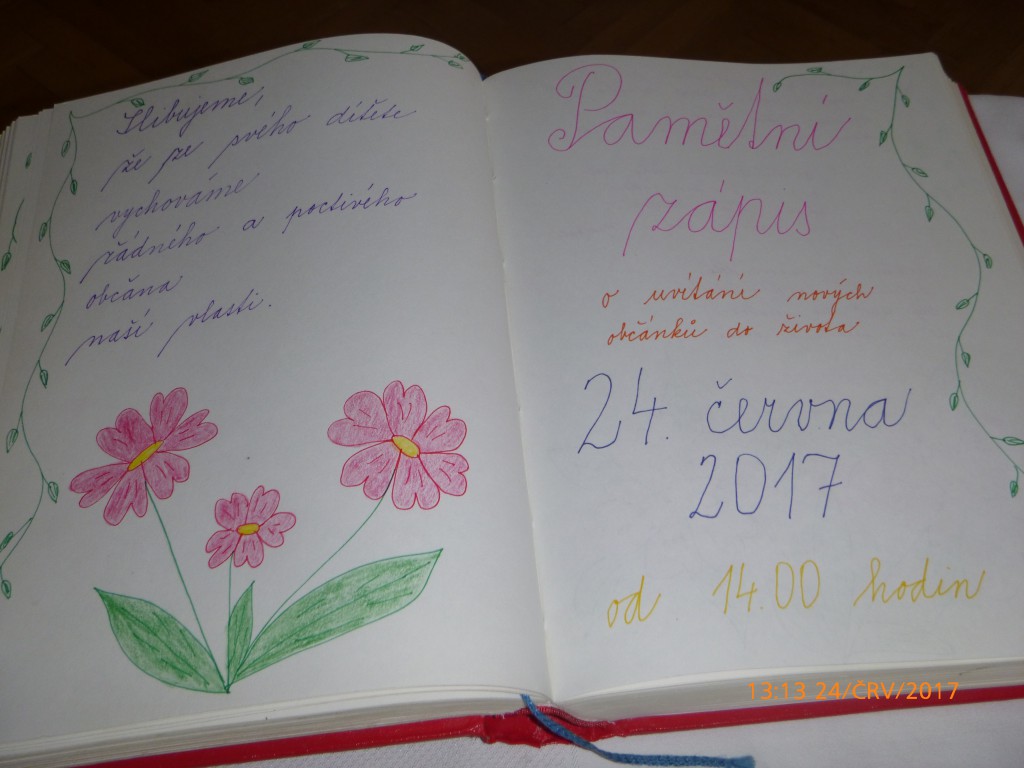 Slibujeme,
že ze svého dítěte
vychováme
řádného a poctivého
občana
naší vlasti.
Pamětní
zápis
o uvítání nových
občánků do života
24. června
2017
od 14.00 hodin
13:13 24/ČRV/2017